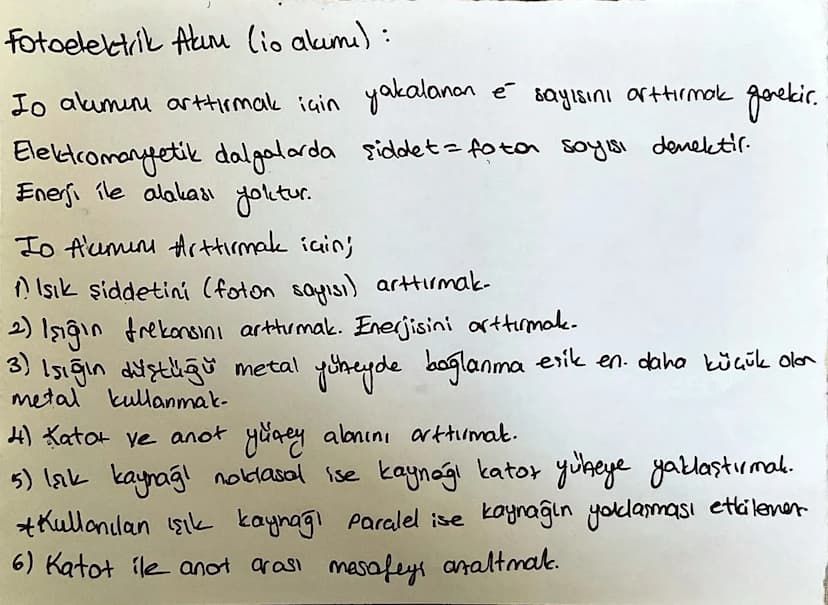 Fotoelektrik Akım (io akımı) :
Io akımını arttırmak için yakalanan e⁻ sayısını arttırmak gerekir.
Elektromanyetik dalgalarda şiddet = foton sayısı demektir.
Enerji ile alakası yoktur.
Io Akımını Arttırmak için;
1) Işık şiddetini (foton sayısı) arttırmak.
2) Işığın frekansını arttırmak. Enerjisini arttırmak.
3) Işığın düştüğü metal yüzeyde bağlanma eşik en. daha küçük olan
metal kullanmak.
4) Katot ve anot yüzey alanını arttırmak.
5) Işık kaynağı noktasal ise kaynağı katot yüzeye yaklaştırmak.
*Kullanılan ışık kaynağı paralel ise kaynağın yaklaşması etkilemez
6) Katot ile anot arası mesafeyi azaltmak.